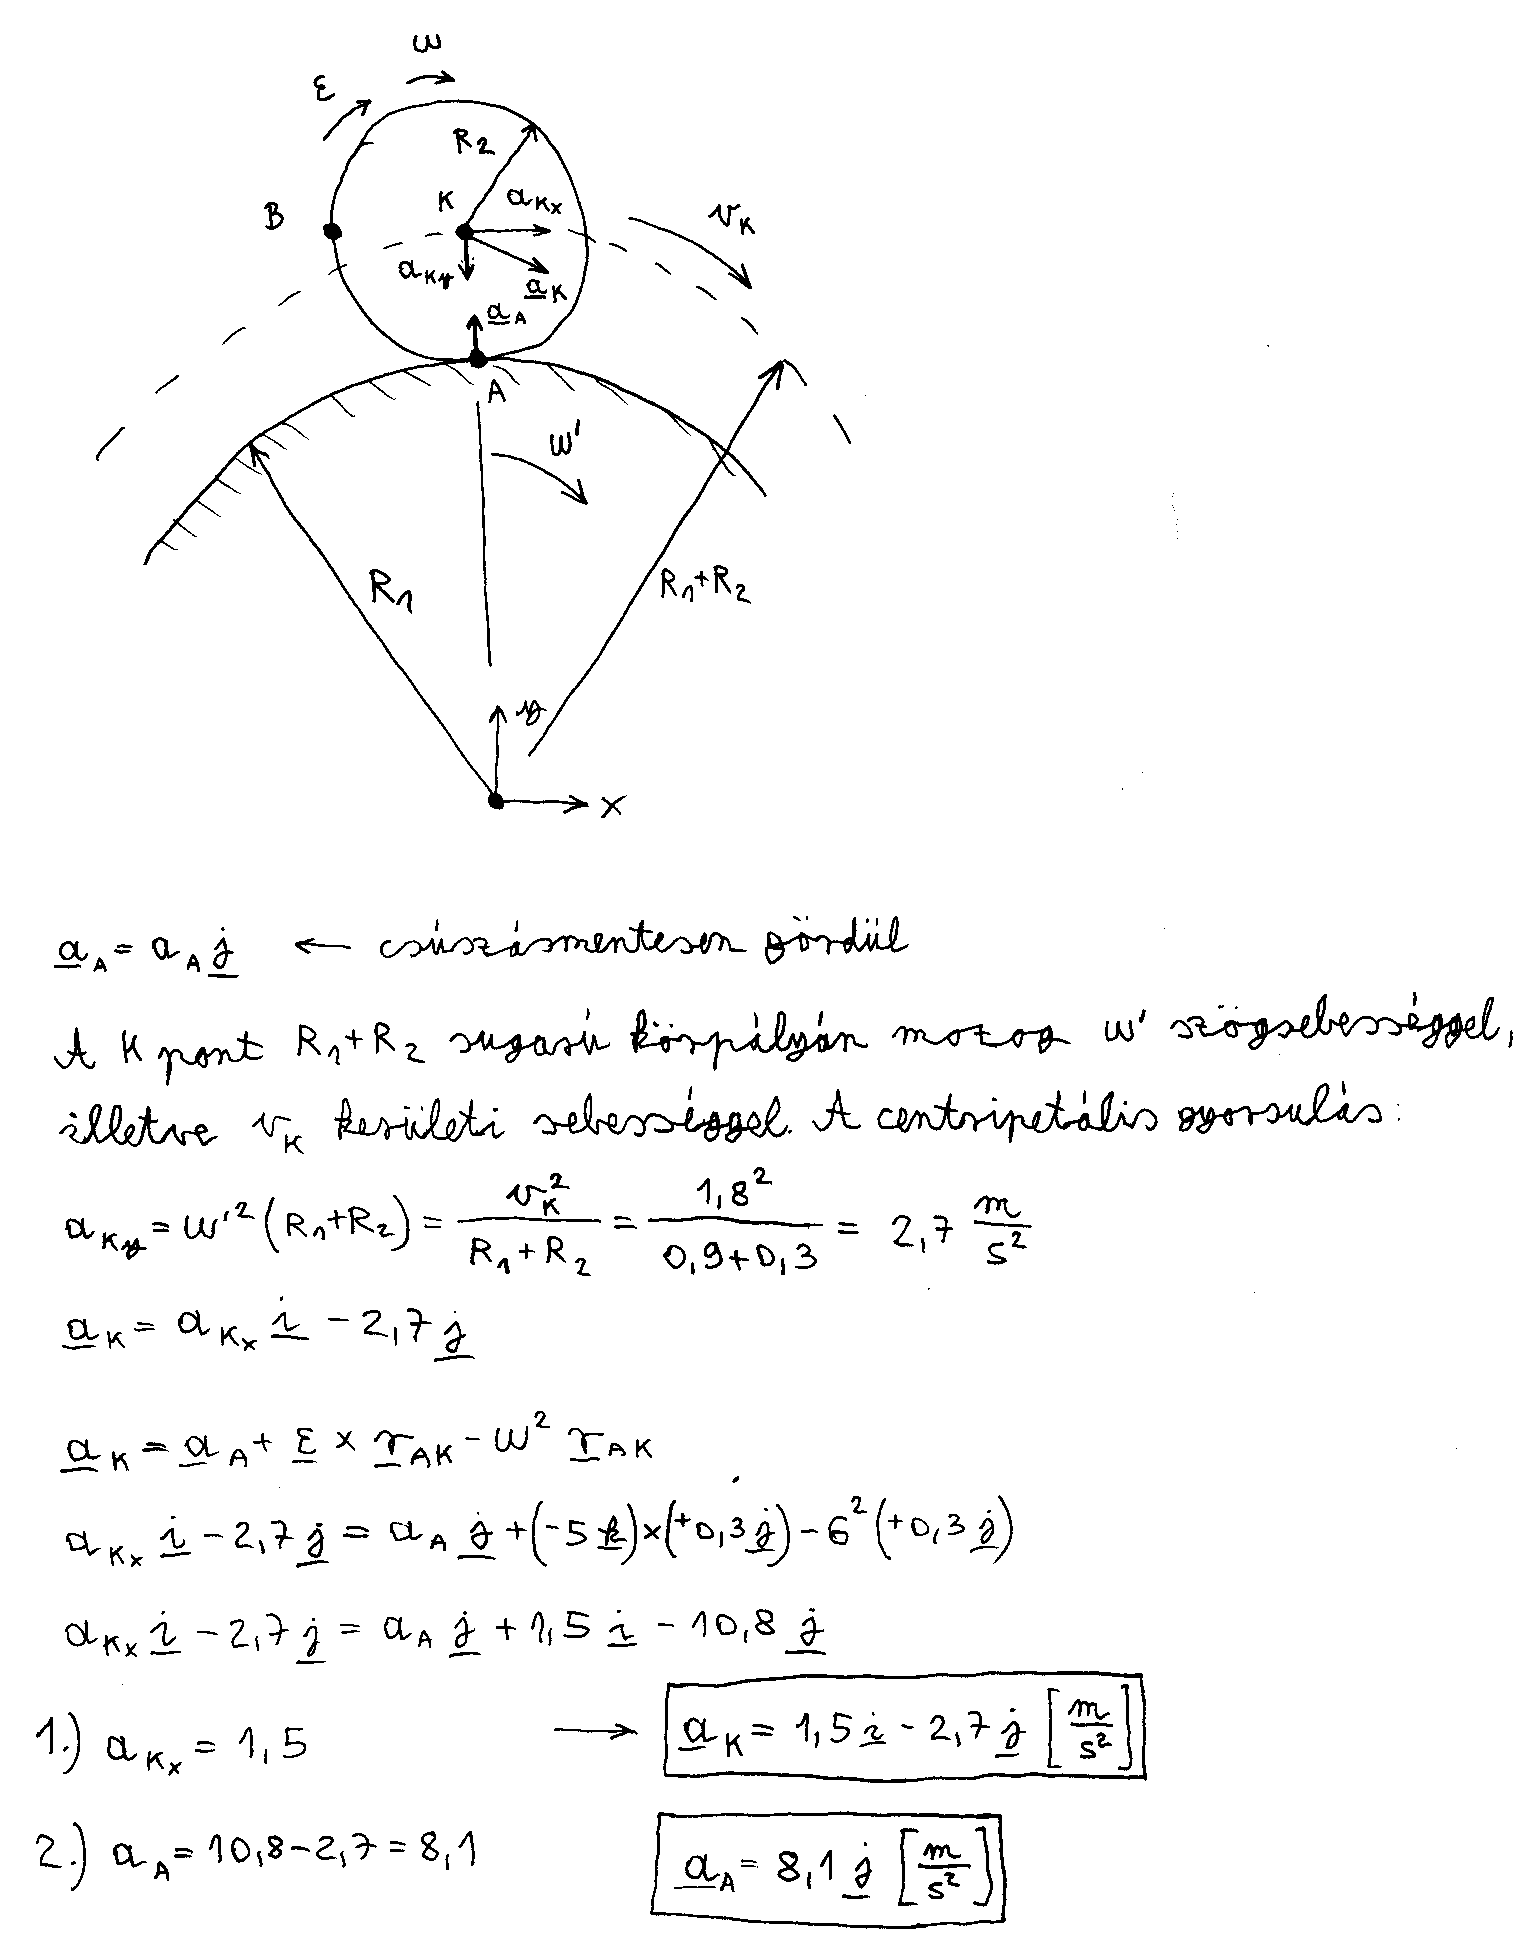 ω
ε
R₂
B
K
a_Kx
v_K
a_Ky
a_K
a_A
A
ω'
R₁
R₁+R₂
y
x
a_A = a_A j ← csúszásmentesen gördül
A K pont R₁+R₂ sugarú körpályán mozog ω' szögsebességgel,
illetve v_K kerületi sebességgel. A centripetális gyorsulás:
a_Ky = ω'² (R₁+R₂) = v_K² / (R₁+R₂) = 1,8² / (0,9+0,3) = 2,7 m/s²
a_K = a_Kx i − 2,7 j
a_K = a_A + ε × r_AK − ω² r_AK
a_Kx i − 2,7 j = a_A j + (−5 k) × (+0,3 j) − 6² (+0,3 j)
a_Kx i − 2,7 j = a_A j + 1,5 i − 10,8 j
1.) a_Kx = 1,5 → a_K = 1,5 i − 2,7 j [m/s²]
2.) a_A = 10,8 − 2,7 = 8,1 a_A = 8,1 j [m/s²]